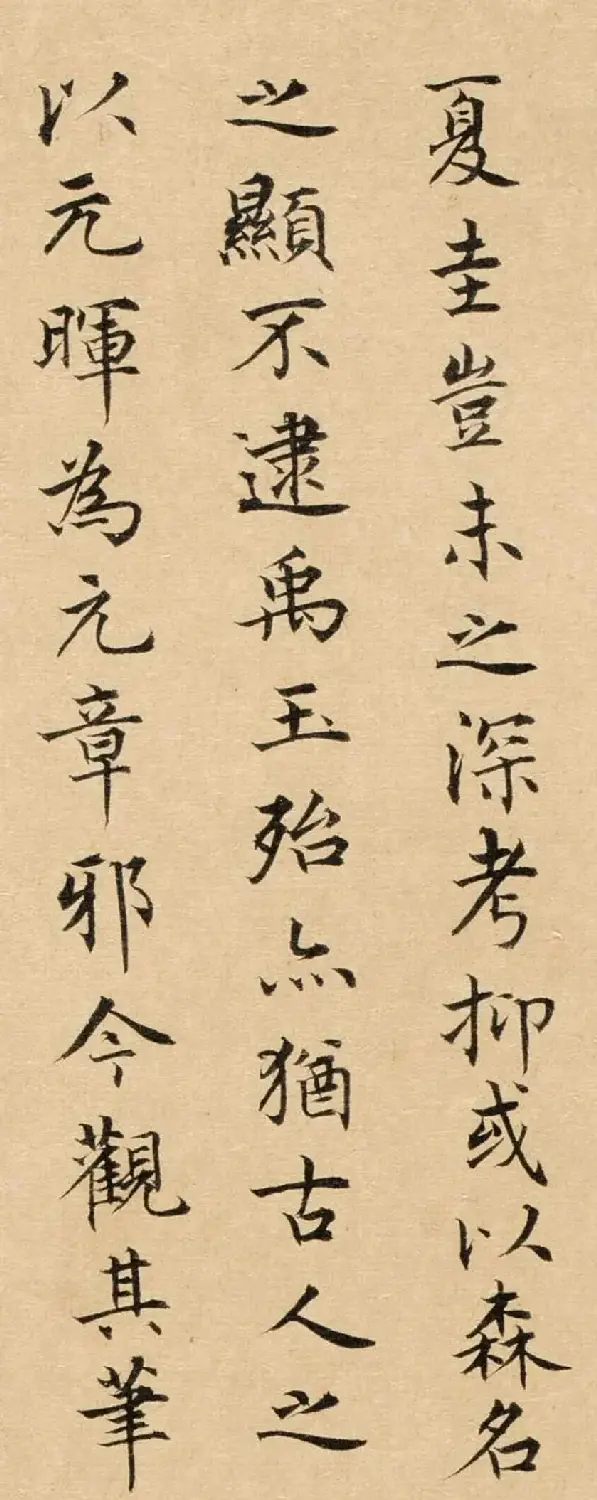 夏圭豈未之深考抑或以森名
之顯不逮禹玉殆亦猶古人之
以元暉為元章邪今觀其筆